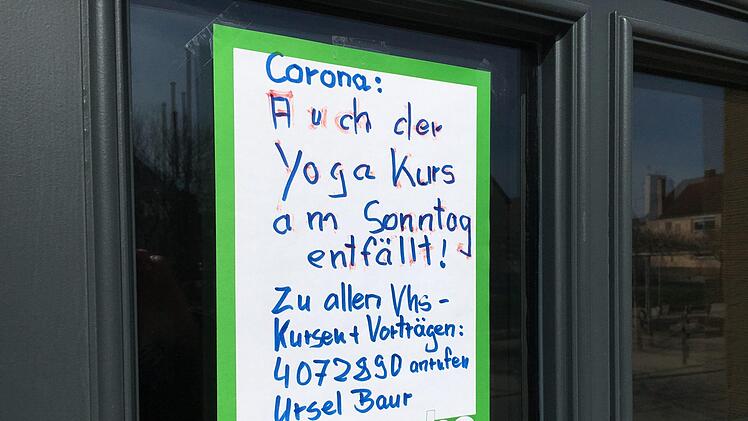 Corona:
Auch der
Yoga Kurs
am Sonntag
entfällt!
Zu allen Vhs-
Kursen + Vorträgen:
4072890 anrufen
Ursel Baur